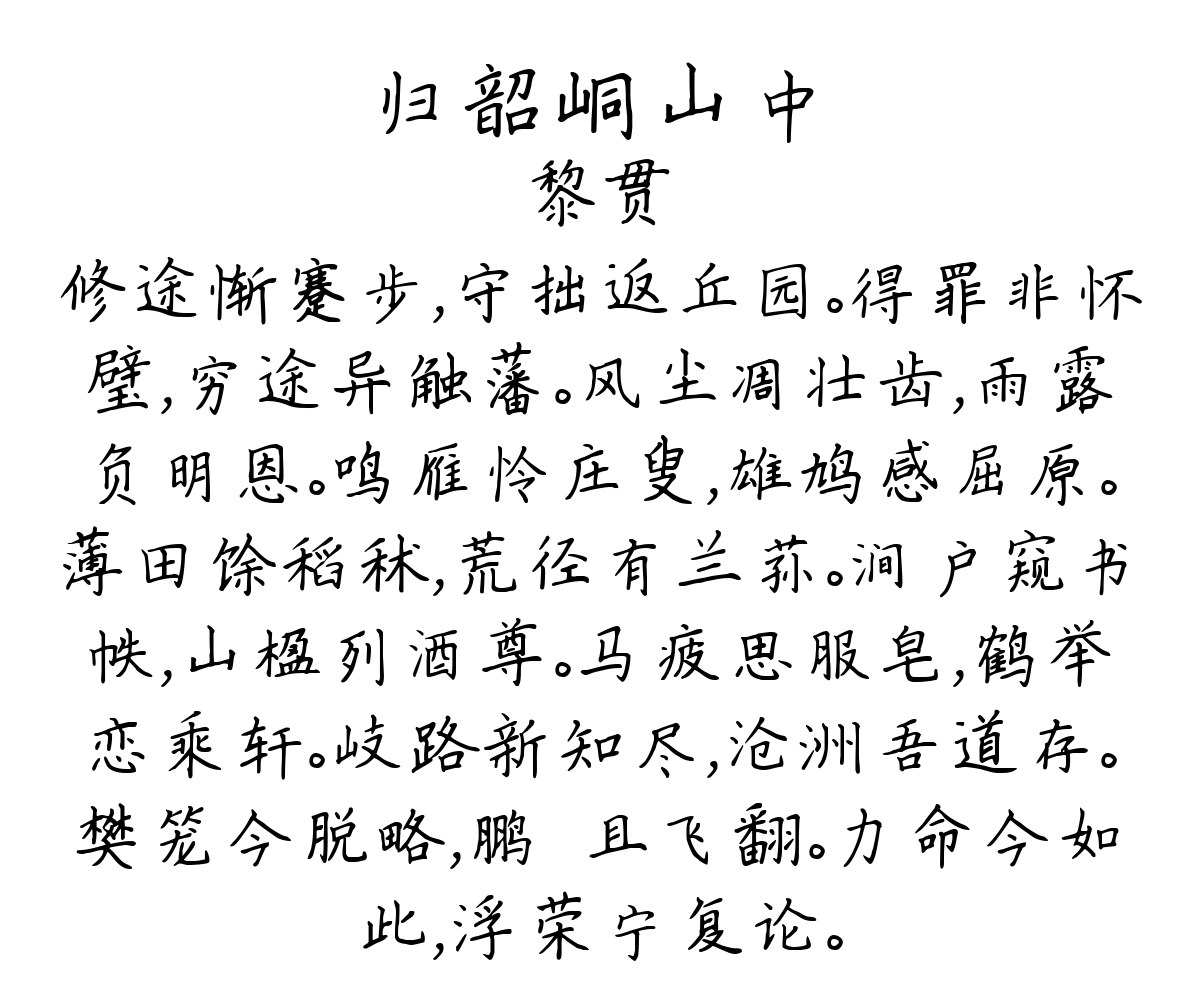 归韶峒山中
黎贯
修途惭蹇步,守拙返丘园。得罪非怀
璧,穷途异触藩。风尘凋壮齿,雨露
负明恩。鸣雁怜庄叟,雄鸠感屈原。
薄田馀稻秫,荒径有兰荪。涧户窥书
帙,山楹列酒尊。马疲思服皂,鹤举
恋乘轩。歧路新知尽,沧洲吾道存。
樊笼今脱略,鹏 且飞翻。力命今如
此,浮荣宁复论。